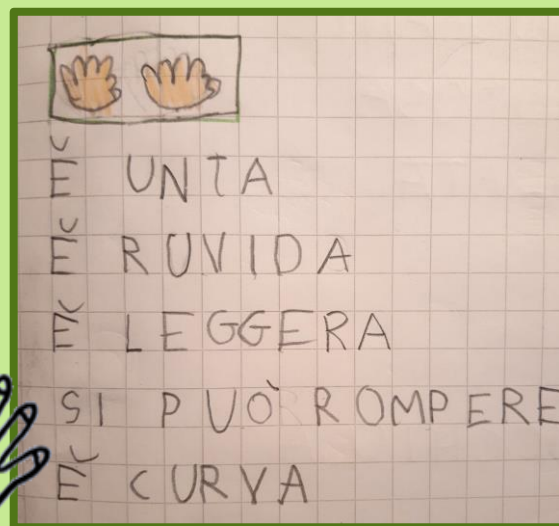 È UNTA
È RUVIDA
È LEGGERA
SI PUÒ ROMPERE
È CURVA